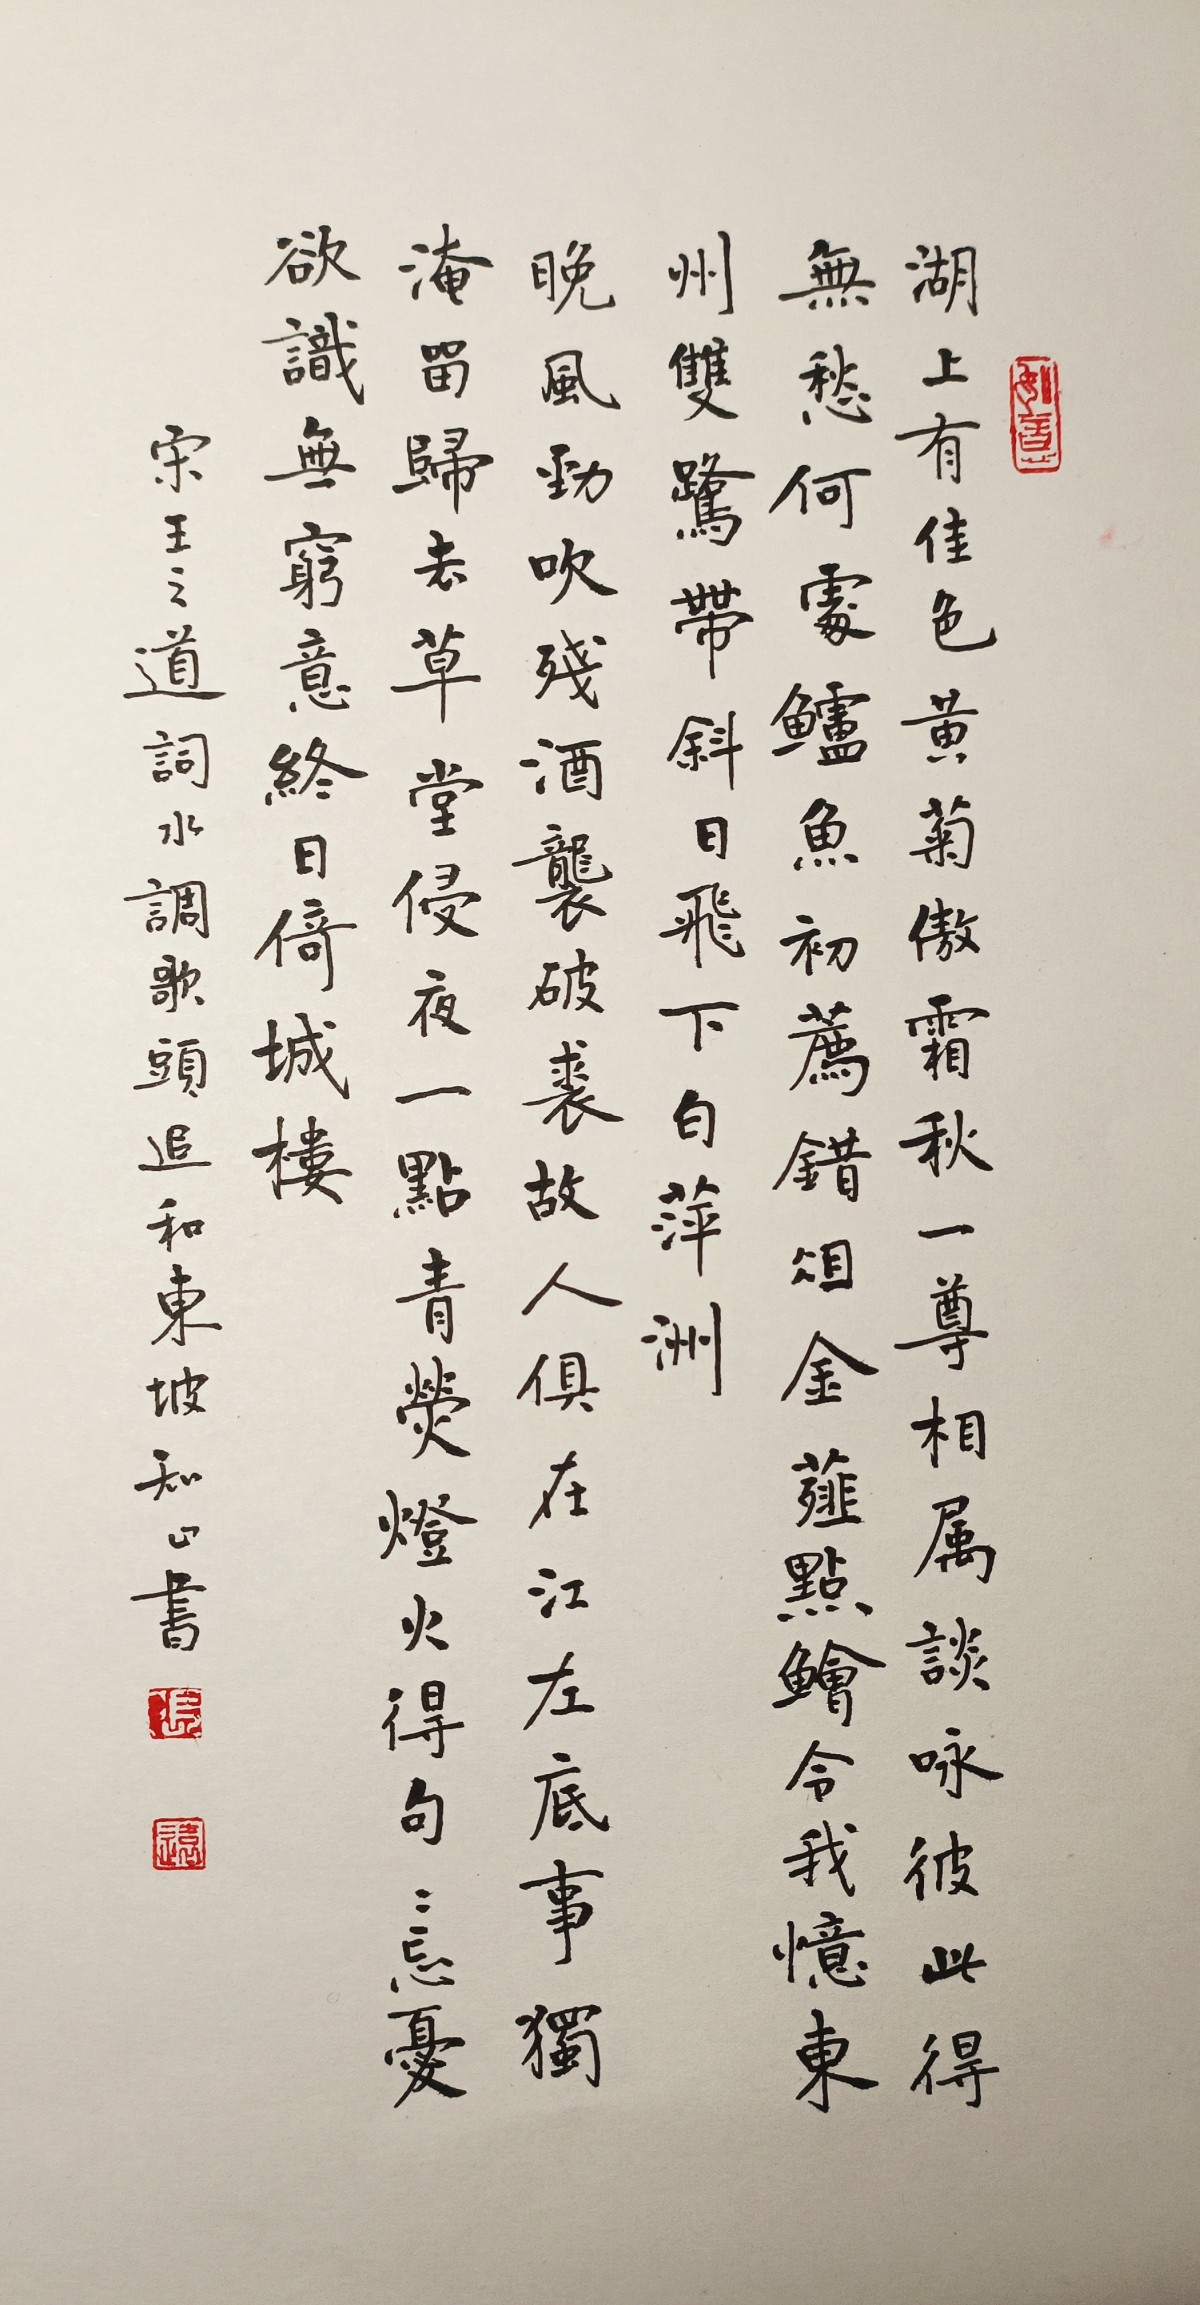 湖上有佳色黄菊傲霜秋一尊相属談咏彼此得
無愁何處鱸魚初薦錯俎金薤點鱠令我憶東
州雙鷺帶斜日飛下白萍洲
晚風勁吹殘酒襲破裘故人俱在江左底事獨
淹留歸去草堂侵夜一點青熒燈火得句〻忘憂
欲識無窮意終日倚城樓
宋王之道詞水調歌頭追和東坡知山書